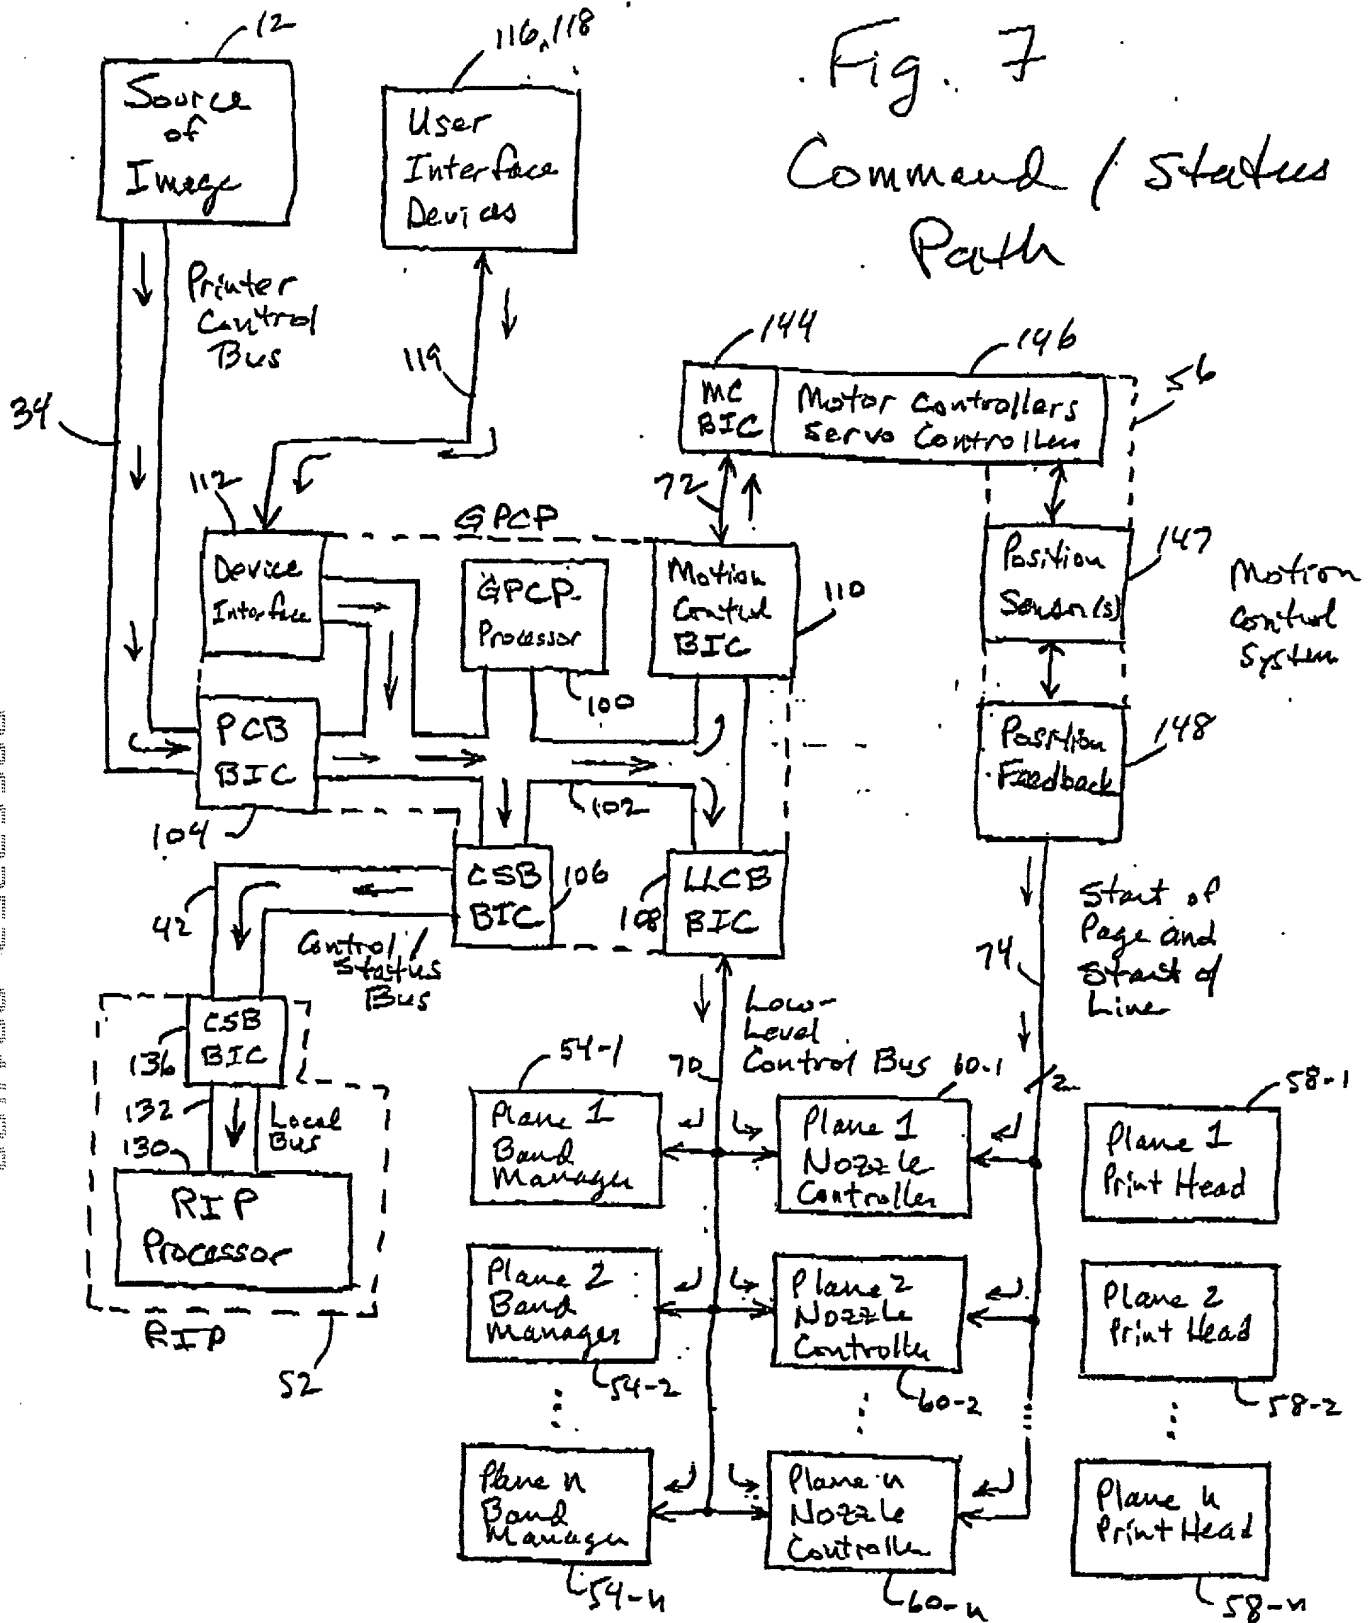 Fig. 7
Command / Status
Path
12
Source
of
Image
116, 118
User
Interface
Devices
Printer
Control
Bus
34
119
144
146
56
MC
BIC
Motor Controllers
Servo Controllers
72
112
GPCP
Device
Interface
GPCP
Processor
100
Motion
Control
BIC
110
Position
Sensor(s)
147
Motion
Control
System
PCB
BIC
104
102
Position
Feedback
148
CSB
BIC
106
108
LLCB
BIC
42
Control/
Status
Bus
Start of
Page and
Start of
Line
74
CSB
BIC
136
132
Local
Bus
130
RIP
Processor
RIP
52
Low-
Level
Control Bus
70
2
54-1
Plane 1
Band
Manager
60-1
Plane 1
Nozzle
Controller
58-1
Plane 1
Print Head
Plane 2
Band
Manager
54-2
Plane 2
Nozzle
Controller
60-2
Plane 2
Print Head
58-2
Plane n
Band
Manager
54-n
Plane n
Nozzle
Controller
60-n
Plane n
Print Head
58-n